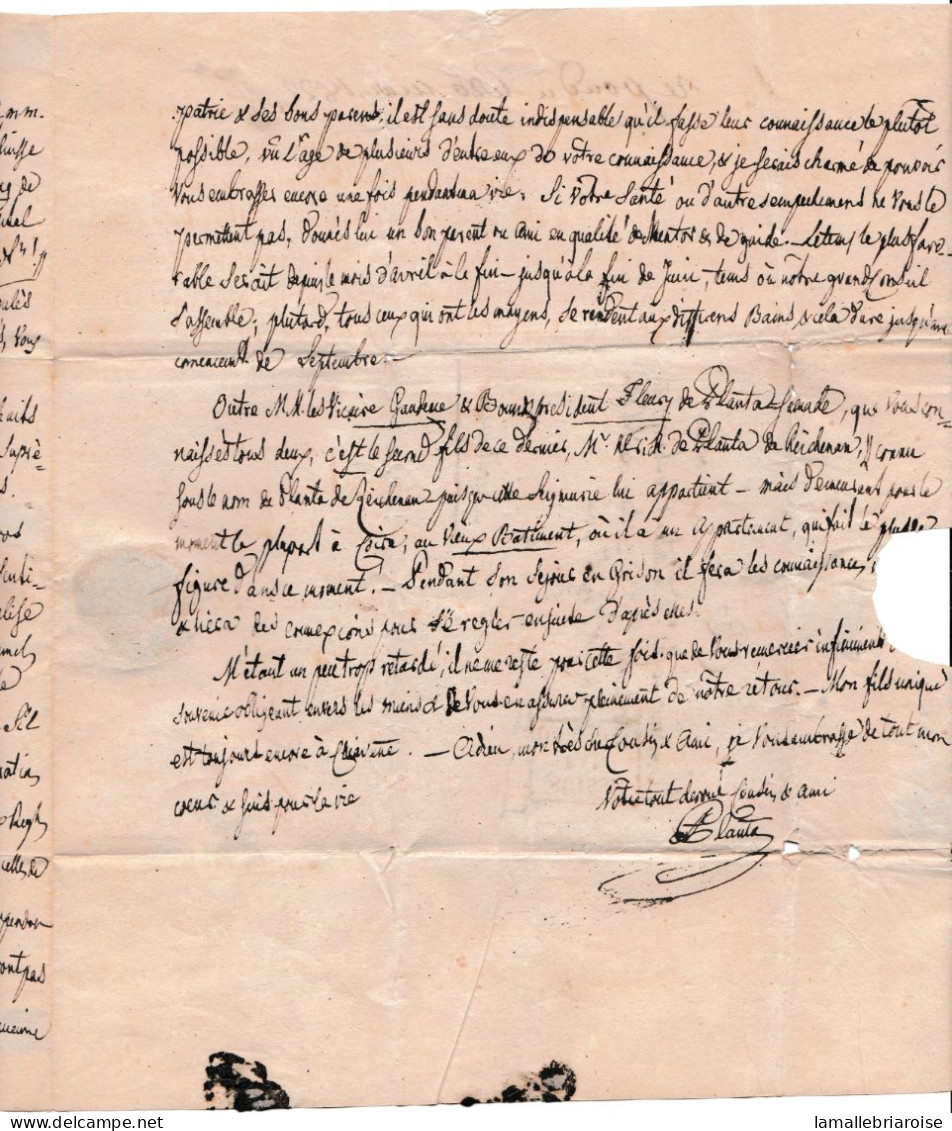 patrie & ses bons parens, il est sans doute indispensable qu'il fasse leur connaissance le plutôt
possible, vû l'âge de plusieurs d'entre eux de vôtre connaissance, & je serais charmé de pouvoir
Vous embrasser encore une fois pendant ma vie. Si Vôtre Santé ou d'autres empechemens ne Vous le
permettent pas, donnés lui un bon parent ou ami en qualité de Mentor & de guide. – Le tems le plus favo-
rable serait depuis le mois d'avril à la fin – jusqu'à la fin de Juin, tems où nôtre grand Conseil
s'assemble; plutard, tous ceux qui ont les moyens, se rendent aux differens Bains & cela dure jusqu'au
commencemt. de Septembre. –
Outre M.M. les Vicaire Gaudenz & Bounds president Fleury de Planta Samade, que Vous con-
naissés tous deux, c'est le second fils de ce dernier, Mr. Ulrich de Planta de Reichenau, connu
sous le nom de Planta de Reichenau puisque cette Seigneurie lui appartient – mais demeurant pour le
moment la plupart à Coire, au Vieux Batiment, où il a un appartement, qui fait le plus de
figure dans ce moment. – Pendant son sejour en Grison il fera les connaissances,
& liera des connexions pour se regler ensuite d'après elles.
M'étant un peu trop retardé, il ne me reste pour cette fois que de Vous remercier infiniment
souvenir obligeant envers les miens & de Vous en assurer pleinement de nôtre rétour. – Mon fils unique
est toujours encore à Chiavenne. – Adieu, mon très cher Cousin & Ami, je Vous embrasse de tout mon
coeur & suis pour la vie
Vôtre tout devoué Cousin & ami
Planta
lamallebriaroise